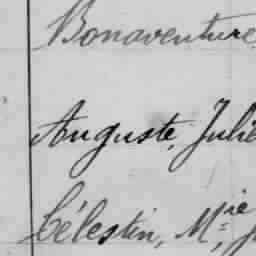 Bonaventure
Auguste, Julie
Célestin, Mie,